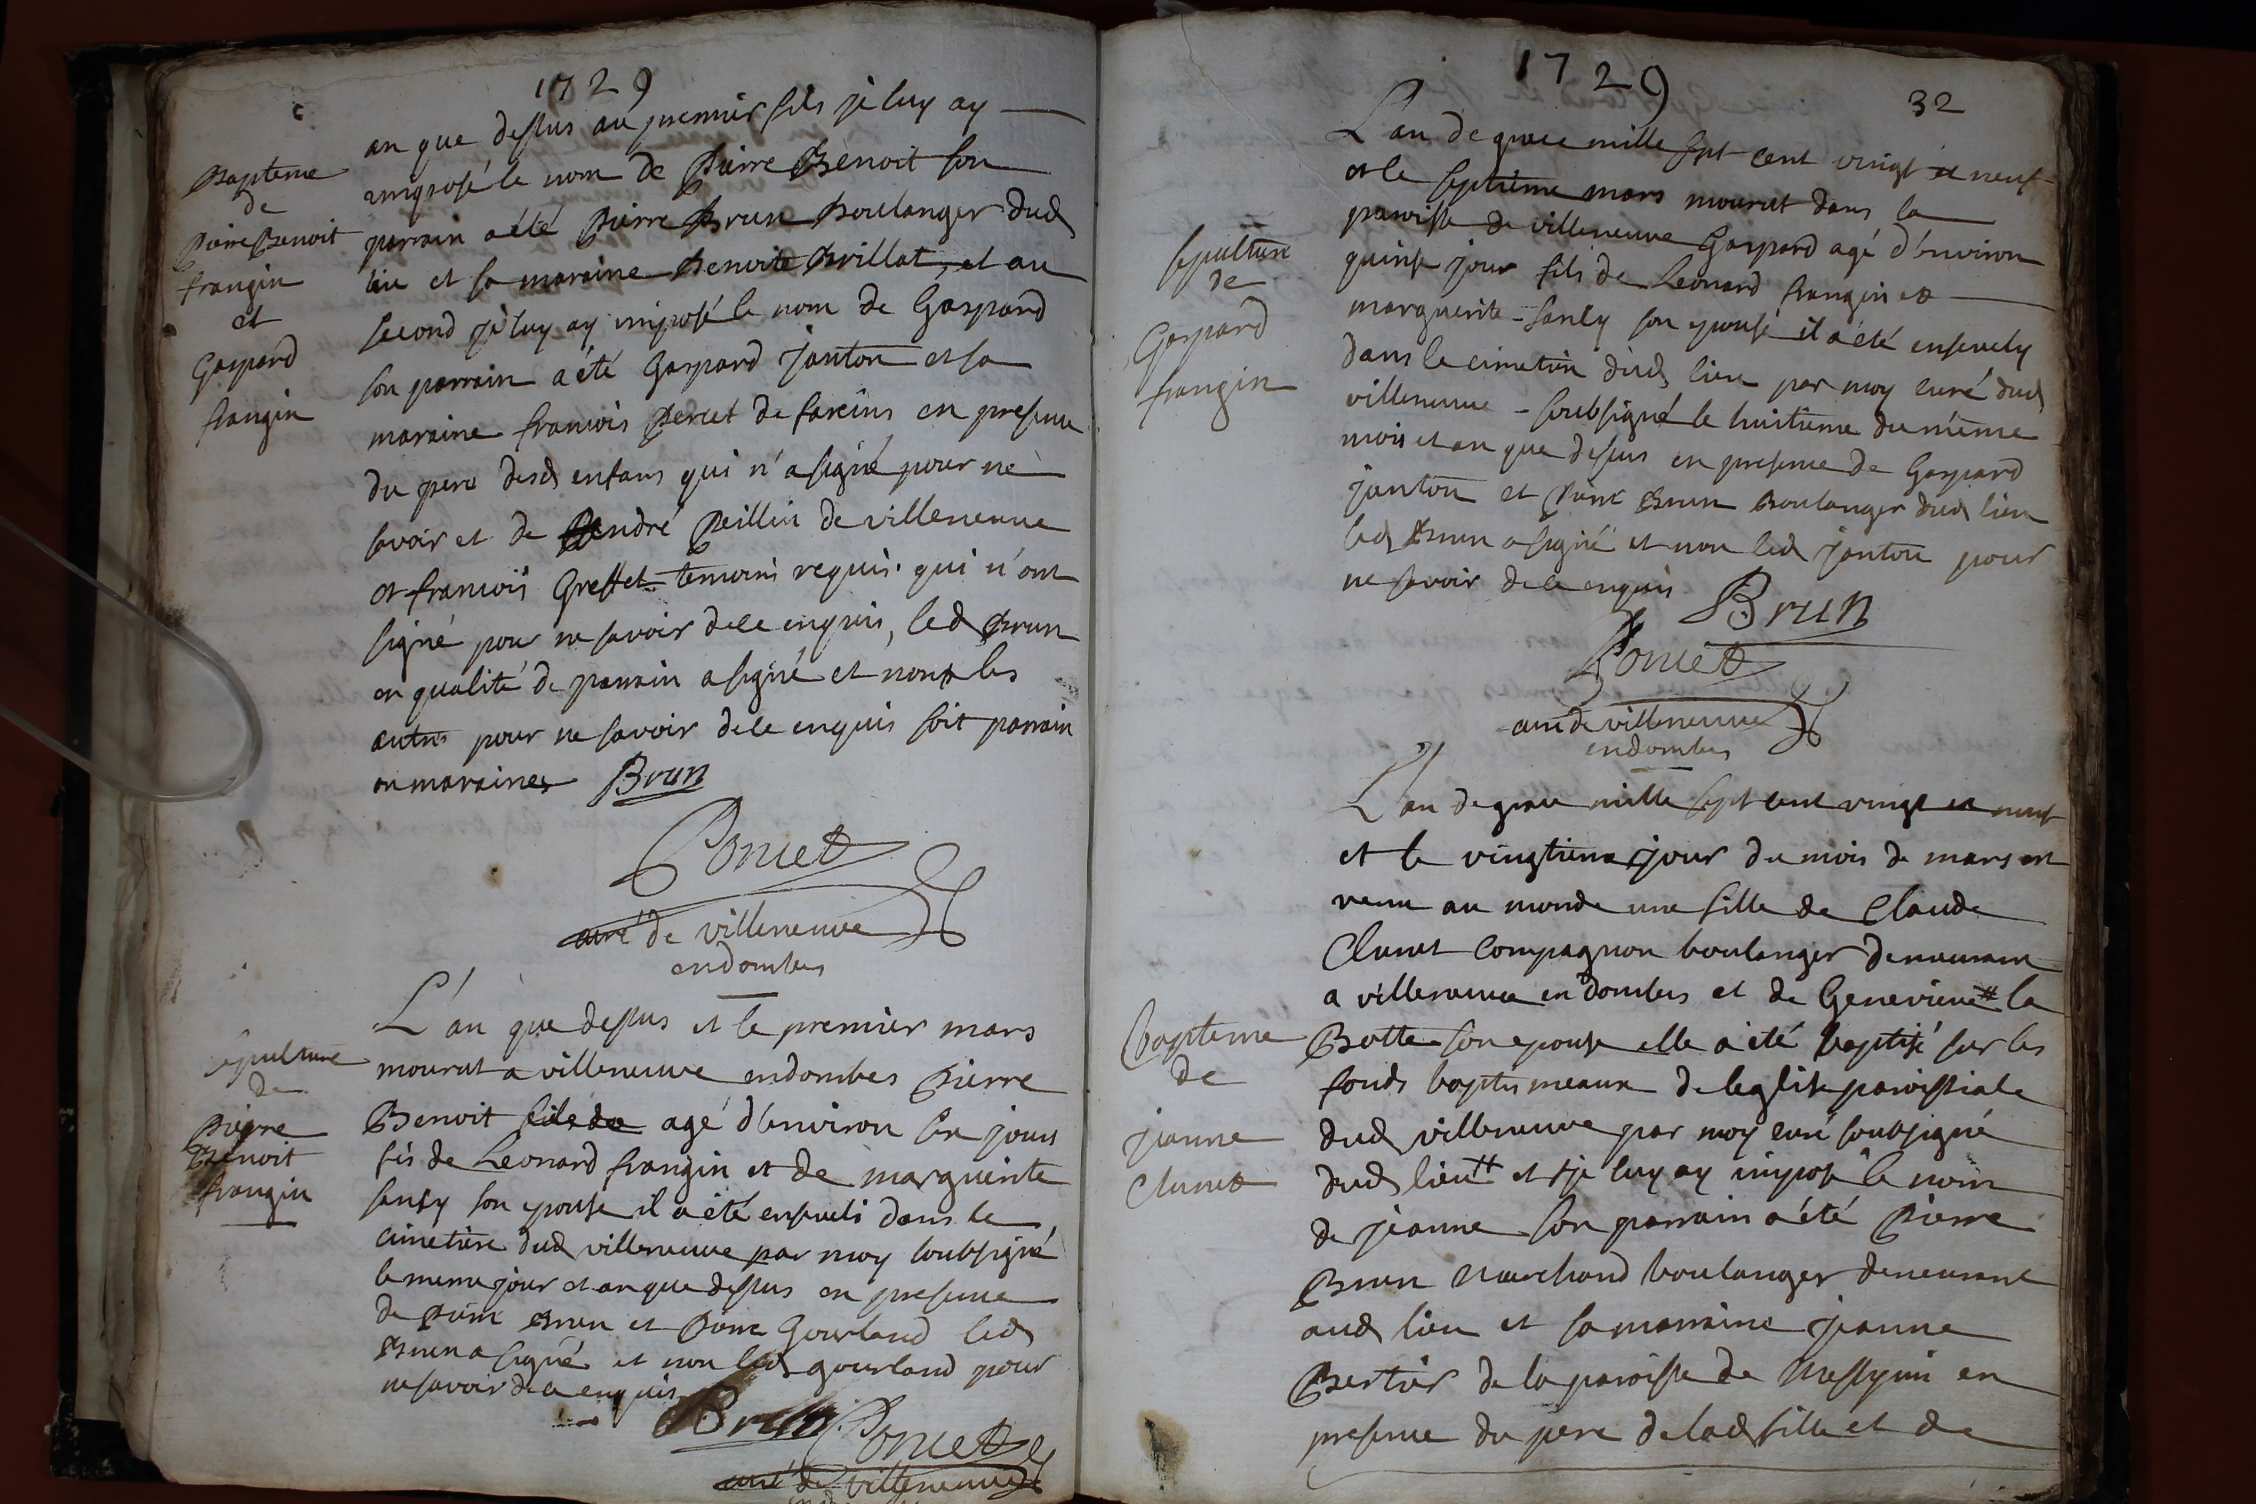 1729
an que dessus au premier fils je luy ay
imposé le nom de Pierre Benoit son
parrain a été Pierre Brun Boulanger dud
lieu et sa maraine Benoite Brillat, et au
second je luy ay imposé le nom de Gaspard
son parrain a été Gaspard janton et sa
maraine francois Percet de fareins en presence
du pere desd enfans qui n'a signé pour ne
savoir et de André Peillin de villeneuve
et francois Greffet temoins requis qui n'ont
signé pour ne savoir de ce enquis, led Brun
en qualité de parrain a signé et non les
autres pour ne savoir de ce enquis soit parrain
ou maraines Brun
Poncet
curé de villeneuve
en dombes
Bapteme
de
Pierre Benoit
frangin
et
Gaspard
frangin
L'an que dessus et le premier mars
mourut a villeneuve en dombes Pierre
Benoit fils de agé d'environ six jours
fils de Leonard frangin et de marguerite
son epouse il a été enseveli dans le
cimetiere dud villeneuve par moy soubsigné
le meme jour et an que dessus en presence
de Pierre Brun et Pierre Gourland led
Brun a signé et non led gourland pour
ne savoir de ce enquis
Brun Poncet
curé de villeneuve
sepulture
de
Pierre
Benoit
frangin
1729
32
L'an de grace mille sept cent vingt et neuf
et le septieme mars mourut dans la
paroisse de villeneuve Gaspard agé d'environ
quinse jour fils de Leonard frangin et
marguerite son epouse il a été ensevely
dans le cimetiere dud lieu par moy curé dud
villeneuve soubsigné le huitieme du même
mois et an que dessus en presence de Gaspard
janton et Pierre Brun Boulanger dud lieu
led Brun a signé et non led janton pour
ne savoir de ce enquis
Brun
Poncet
curé de villeneuve
en dombes
sepulture
de
Gaspard
frangin
L'an de grace mille sept cent vingt et neuf
et le vingtieme jour du mois de mars est
venu au monde une fille de Claude
Clunet Compagnon boulanger demeurant
a villeneuve en dombes et de Genevieve # la
Botte son epouse elle a été baptisé sur les
fonds baptismeaux de leglise paroissiale
dud villeneuve par moy curé soubsigné
dud lieu # et je luy ay imposé le nom
de jeanne son parrain a été Pierre
Brun Marchand boulanger demeurant
aud lieu et sa marraine jeanne
Bertier de la paroisse de Messymi en
presence du pere de lad fille et de
Bapteme
de
jeanne
Clunet